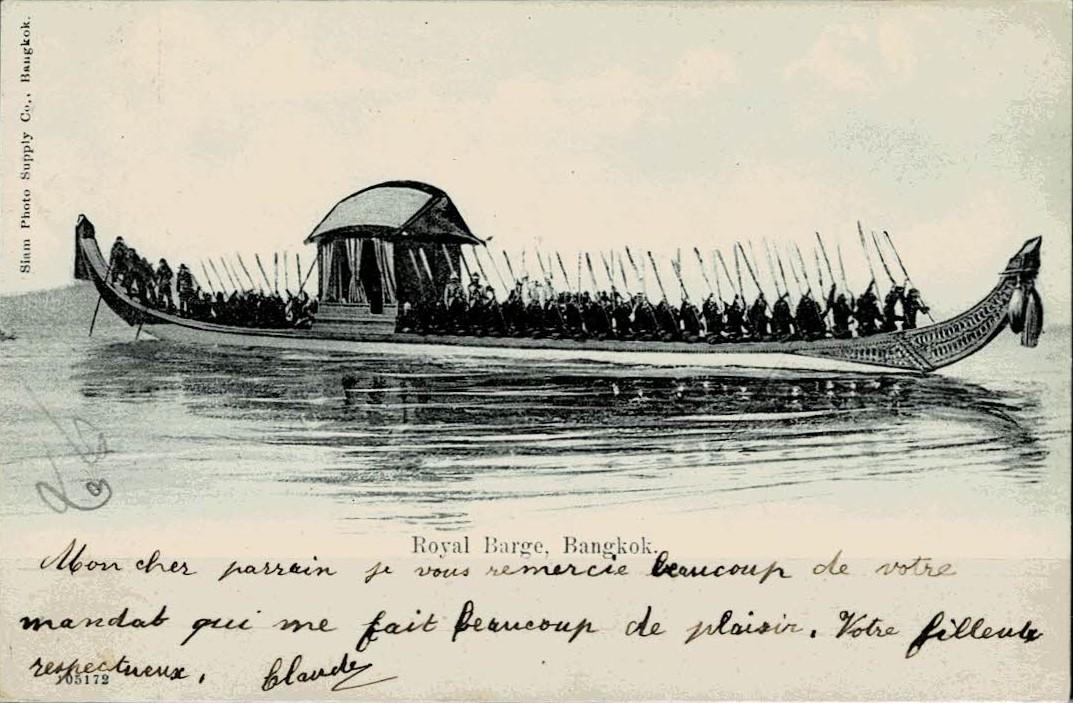 Siam Photo Supply Co., Bangkok.
Royal Barge, Bangkok.
Mon cher parrain je vous remercie beaucoup de votre
mandat qui me fait beaucoup de plaisir. Votre filleul
respectueux. Claude
105172